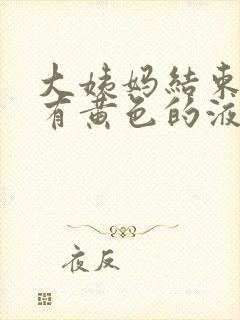 大姨妈結束
有黄色的液
夜反